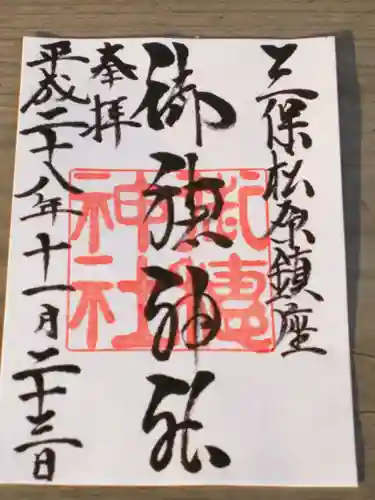 三保松原鎮座
御穂神社
奉拝
平成二十八年十一月二十三日
御穂
神社